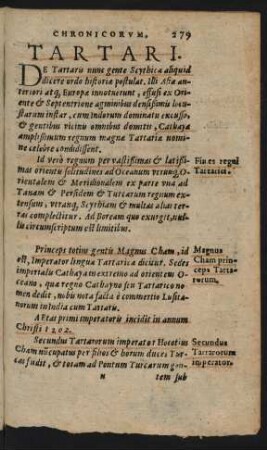 CHRONICORVM. 279
TARTARI.
DE Tartaris nunc gente Scythica aliquid
dicere ordo historiæ postulat. Illi Asiæ an-
teriori atq; Europæ innotuerunt, effusi ex Ori-
ente & Septentrione agminibus densissimis locu-
starum instar, cum Indorum dominatu excusso,
& gentibus vicinis omnibus domitis, Cathaya
amplissimum regnum magna Tartaria nomi-
ne celebre condidissent.
Id verò regnum per vastissimas & latissi-
mas orientis solitudines ad Oceanum verumq;
Orientalem & Meridionalem ex parte vna ad
Tanaim & Persidem & Turcarum regnum ex-
tensum, vtranq; Scythiam & multas alias ter-
ras complectitur. Ad Boream quo exurgit, nul-
lis circumscriptum est limitibus.
Fines regni
Tartarici.
Princeps totius gentis Magnus Cham, id
est, Imperator lingua Tartarica dicitur. Sedes
imperialis Cathaya in extremo ad orientem O-
ceano, qua regno Cathayno seu Tartarico no-
men dedit, nobis nota facta è commertiis Lusita-
norum in India cum Tartaris.
Magnus
Cham prin-
ceps Tarta-
rorum.
Ætas primi imperatoris incidit in annum
Christi 1202.
Secundus Tartarorum imperator Hocotius
Cham nuncupatus per filios & horum duces Tur-
cas fudit, & totam ad Pontum Turcarum gen-
Secundus
Tartarorum
imperator.
N tem sub